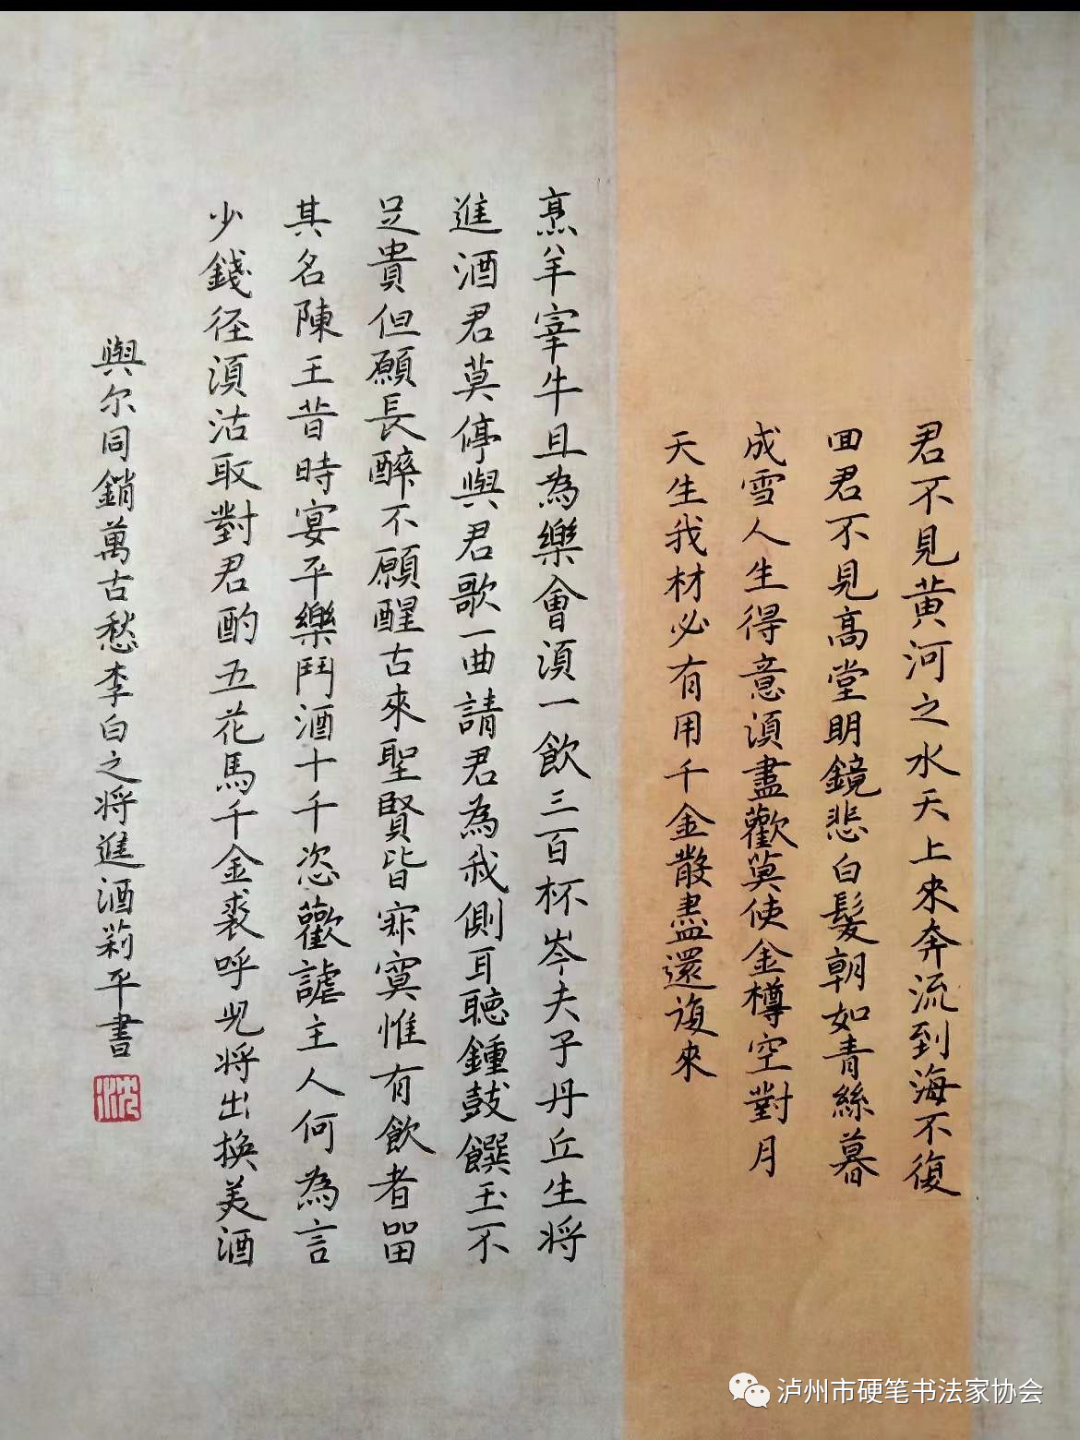 君不見黄河之水天上來奔流到海不復
回君不見高堂明鏡悲白髮朝如青絲暮
成雪人生得意須盡歡莫使金樽空對月
天生我材必有用千金散盡還復來
烹羊宰牛且為樂會須一飲三百杯岑夫子丹丘生將
進酒君莫停與君歌一曲請君為我側耳聽鍾鼓饌玉不
足貴但願長醉不願醒古來聖賢皆寂寞惟有飲者留
其名陳王昔時宴平樂鬥酒十千恣歡謔主人何為言
少錢径須沽取對君酌五花馬千金裘呼児將出換美酒
與尔同銷萬古愁李白之將進酒莉平書
沈
泸州市硬笔书法家协会